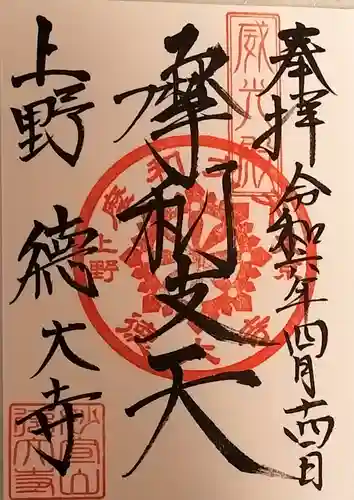 奉拝 令和六年四月十四日
摩利支天
上野 德大寺
威光殿
上野